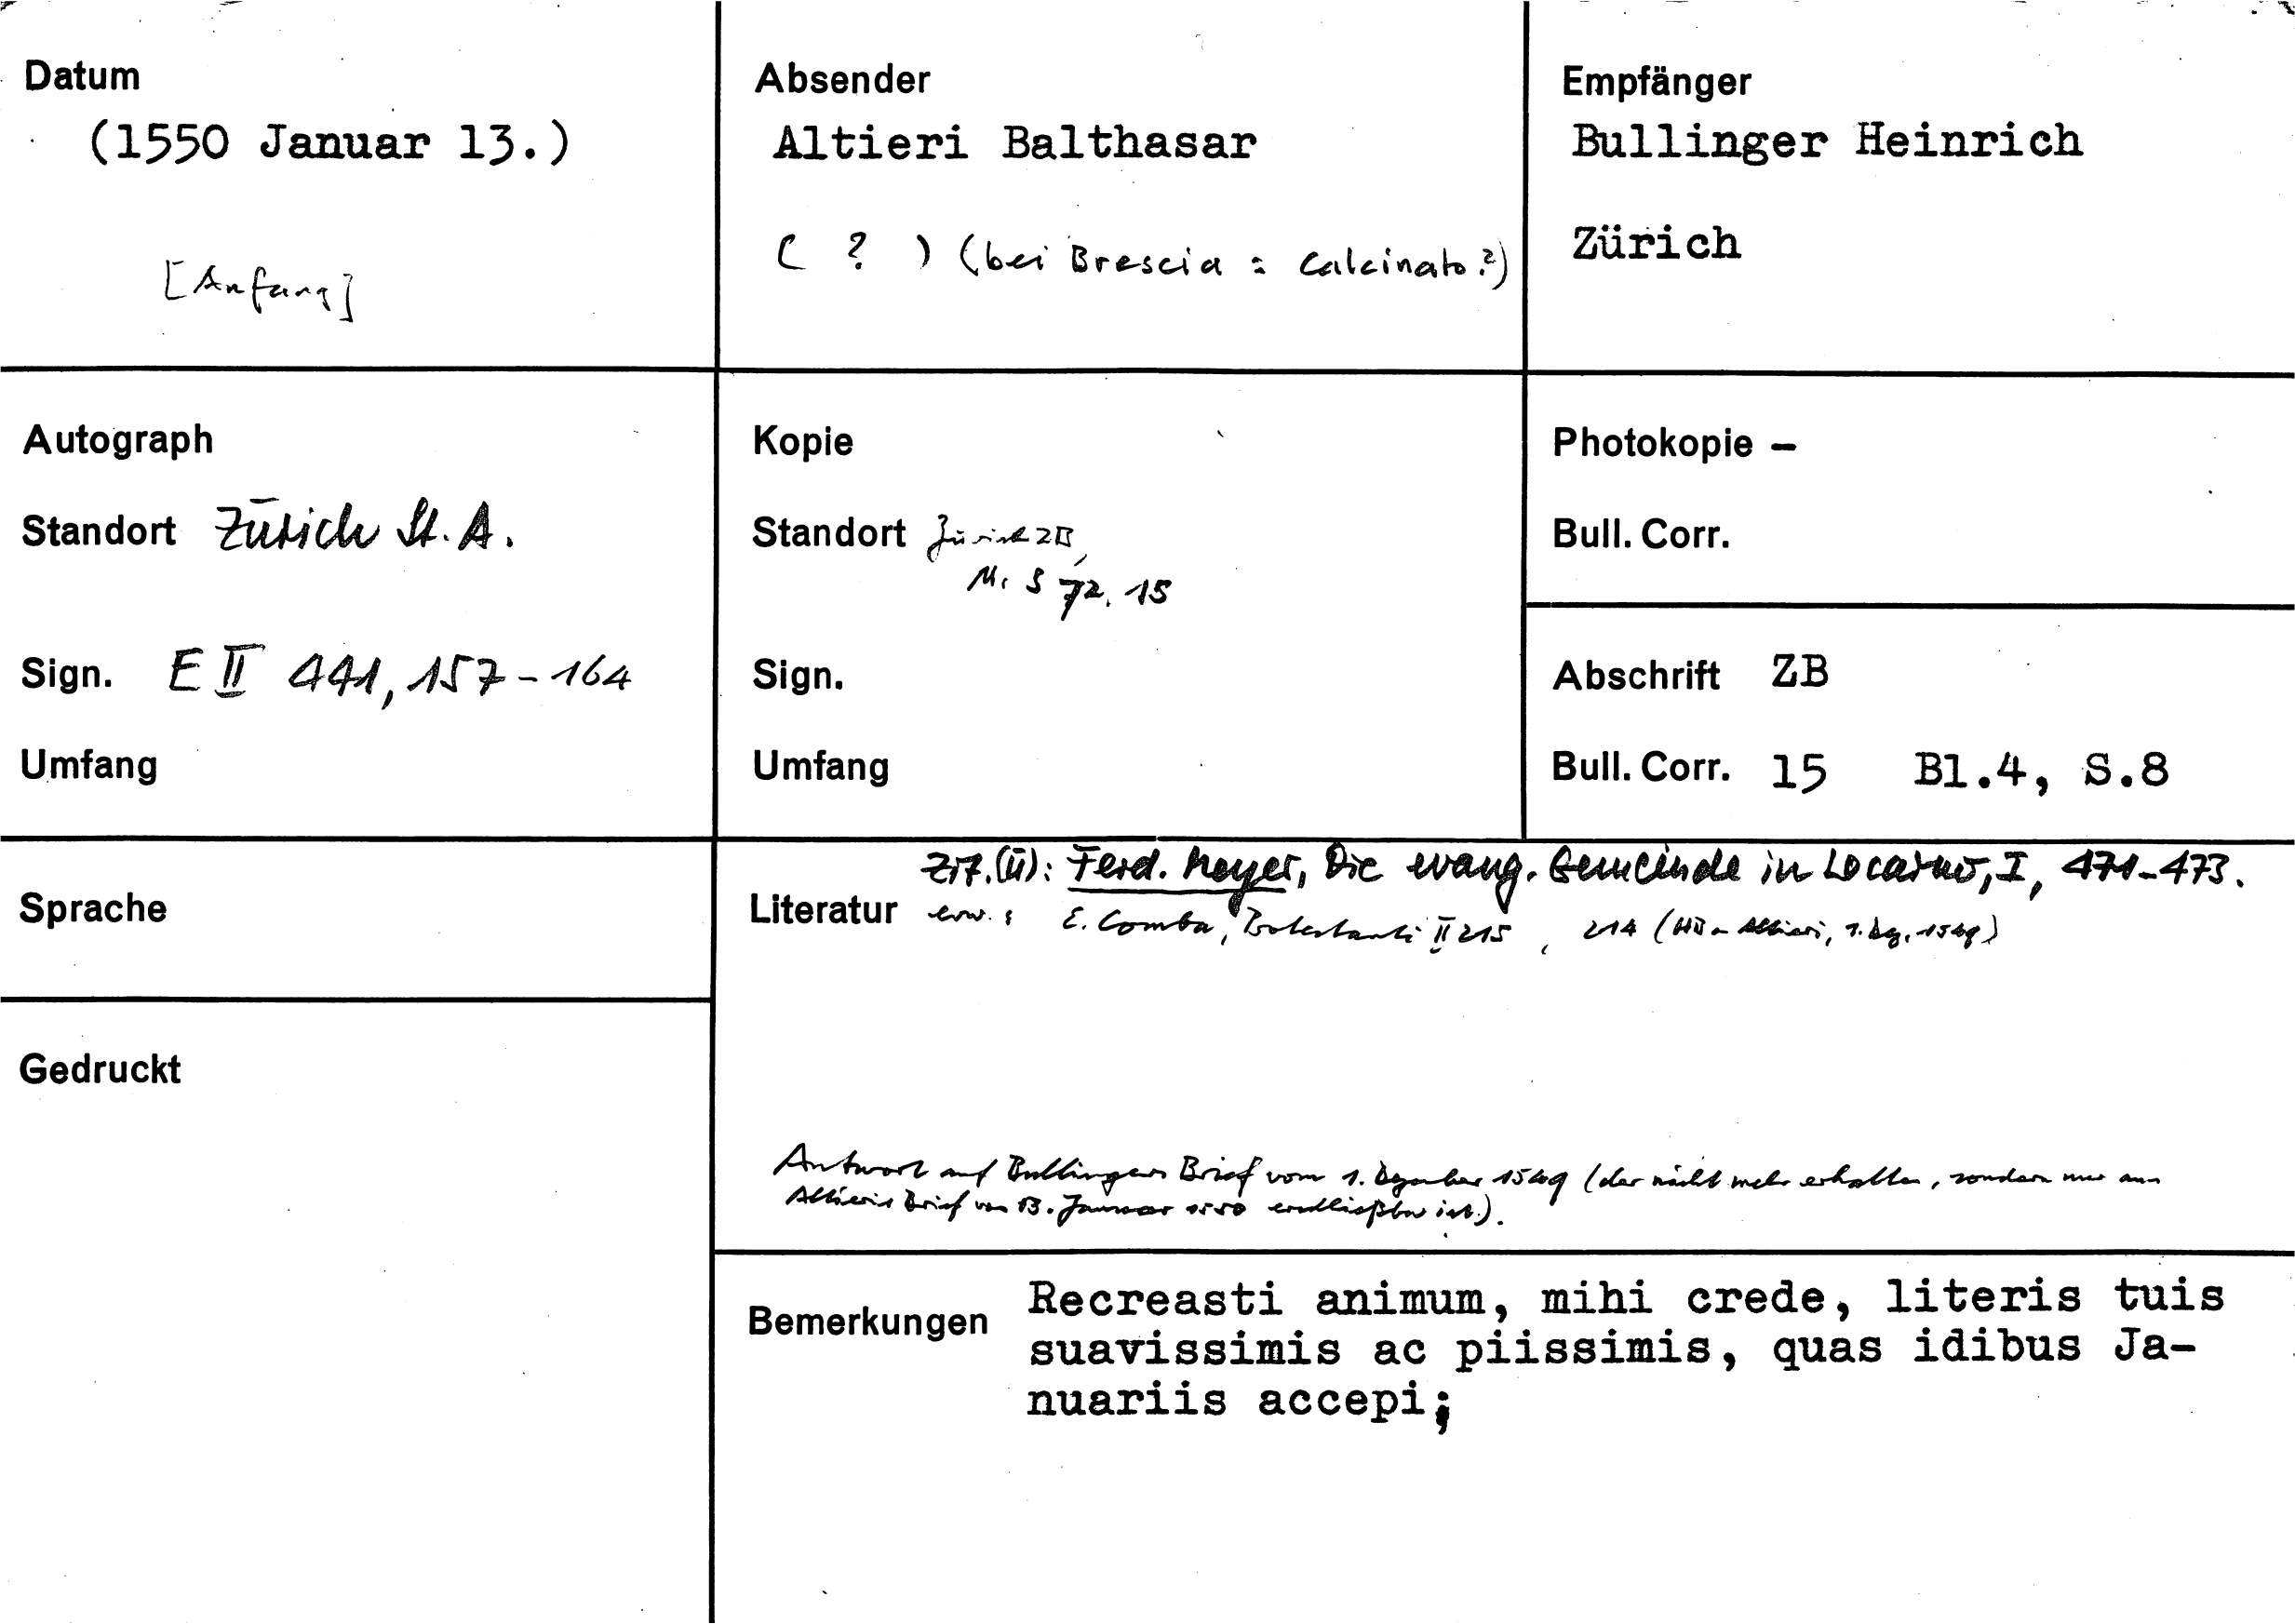 Datum
(1550 Januar 13.)
[Anfang]
Absender
Altieri Balthasar
( ? ) (bei Brescia = Calcinato?)
Empfänger
Bullinger Heinrich
Zürich
Autograph
Standort Zürich St. A.
Sign. E II 441, 157-164
Umfang
Kopie
Standort Zürich ZB,
Ms S 72, 15
Sign.
Umfang
Photokopie –
Bull. Corr.
Abschrift ZB
Bull. Corr. 15 Bl.4, S.8
Sprache
Gedruckt
zit. (ü): Ferd. Meyer, Die evang. Gemeinde in Locarno, I, 471-473.
Literatur erw.: E. Comba, Protestanti II 215, 214 (HB - Altieri, 1. Dez. 1549)
Antwort auf Bullingers Brief vom 1. Dezember 1549 (der nicht mehr erhalten, sondern nur aus
Altieris Brief von 13. Januar 1550 erschließbar ist.).
Bemerkungen Recreasti animum, mihi crede, literis tuis
suavissimis ac piissimis, quas idibus Ja-
nuariis accepi;